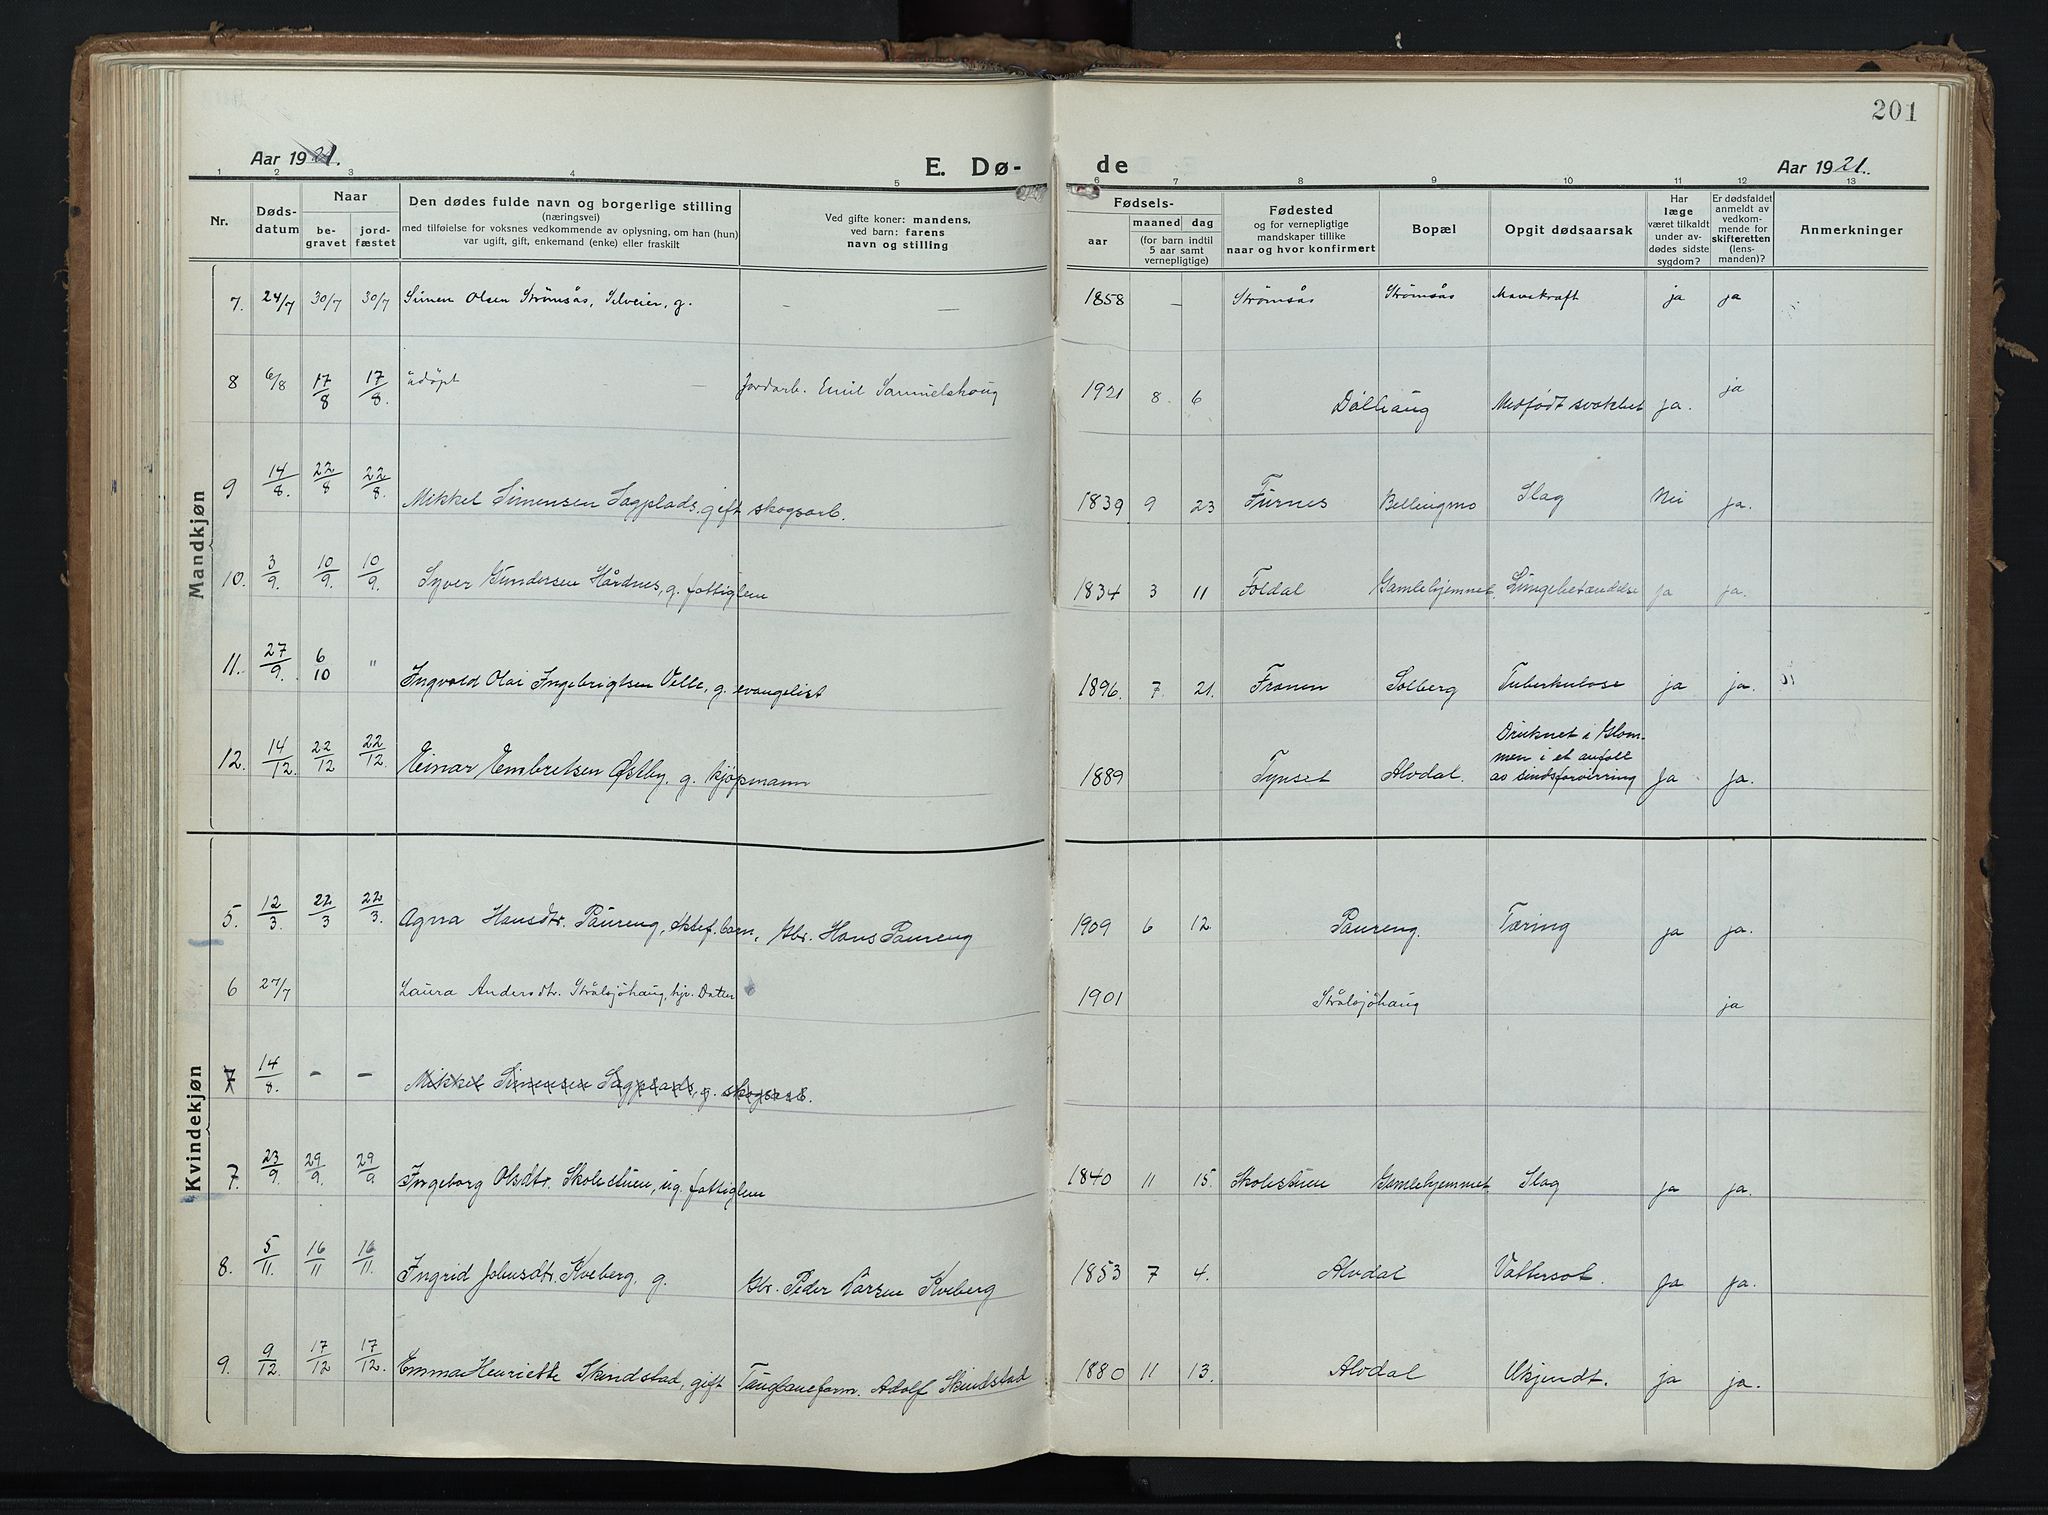 201
Aar 1921.
E. Dø-
de
Aar 1921.
1 2 3 4 5 6 7 8 9 10 11 12 13
Nr.
Døds-
datum
Naar
be-
gravet
jord-
fæstet
Den dødes fulde navn og borgerlige stilling
(næringsvei)
med tilføielse for voksnes vedkommende av oplysning, om han (hun)
var ugift, gift, enkemand (enke) eller fraskilt
Ved gifte koner: mandens,
ved barn: farens
navn og stilling
Fødsels-
aar
maaned
dag
(for barn indtil
5 aar samt
vernepligtige)
Fødested
og for vernepligtige
mandskaper tillike
naar og hvor konfirmert
Bopæl
Opgit dødsaarsak
Har
læge
været tilkaldt
under av-
dødes sidste
sygdom?
Er dødsfaldet
anmeldt av
vedkom-
mende for
skifteretten
(lens-
manden)?
Anmerkninger
Mandkjøn
7. 24/7 30/7 30/7 Simen Olsen Strømsås, Selveier, g. — — 1858 — Strømsås Strømsås Mavekræft ja ja
8 6/8 17/8 17/8. udøpt — Jordarb. Emil Samuelshoug 1921 8 6 Dølhaug Medfødt svakhet ja. ja
9 14/8. 22/8 22/8. Mikkel Simensen Sagplads, gift skogsarb. 1839 9 23 Furnes Bellingmo Slag Nei ja.
10. 3/9. 10/9. 10/9. Syver Gundersen Hårdnes, g. fattiglem 1834 3 11 Foldal Gamlehjemmet. Lungebetændelse ja ja.
11. 27/9. 6/10 " Ingvald Olai Ingebrigtsen Velle, g. evangelist 1896. 7. 21. Fronen Solberg Tuberkulose ja ja.
12. 14/12. 22/12 22/12. Einar Embretsen Østby, g. kjøpmann 1889 Tynset Alvdal. Druknet i Glom-
men i et anfall
av sindsforvirring ja ja.
Kvindekjøn
5. 12/3. 22/3 22/3. Agna Hansdtr. Paureng, ektef. barn, Gbr. Hans Paureng 1909 6 12. Paureng. Tæring ja ja.
6 27/7 Laura Andersdtr. Strålsjøhaug, hjv. Datter 1901 Strålsjøhaug ja
7 14/8. – – Mikkel Simensen Sagplads, g. skogsarb.
7. 23/9. 29/9. 29/9 Ingeborg Olsdtr. Skolestuen, ug. fattiglem 1840 11 15. Skolestuen Gamlehjemmet. Slag ja ja.
8. 5/11. 16/11 16/11. Ingrid Johnsdtr. Kveberg, g. Gbr. Peder Larsen Kveberg 1853 7 4. Alvdal Vattersot. ja ja.
9. 9/12. 17/12 17/12. Emma Henriette Skindstad, gift Taugbaneform. Adolf Skindstad 1880 11 13. Alvdal Ukjendt. ja ja.